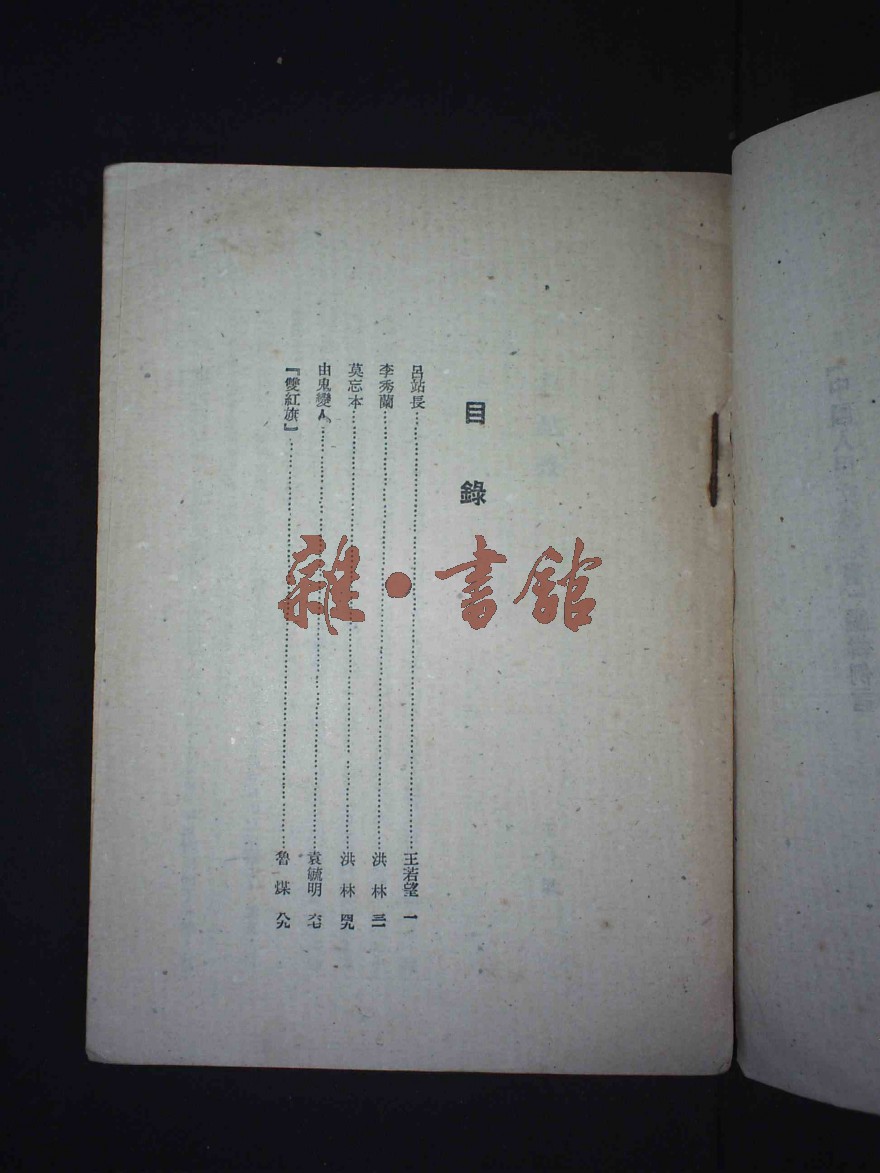 目錄
呂站長……王若望 一
李秀蘭……洪林 三一
莫忘本……洪林 四九
由鬼變人……袁毓明 六七
『雙紅旗』……魯煤 八九
雜·書館